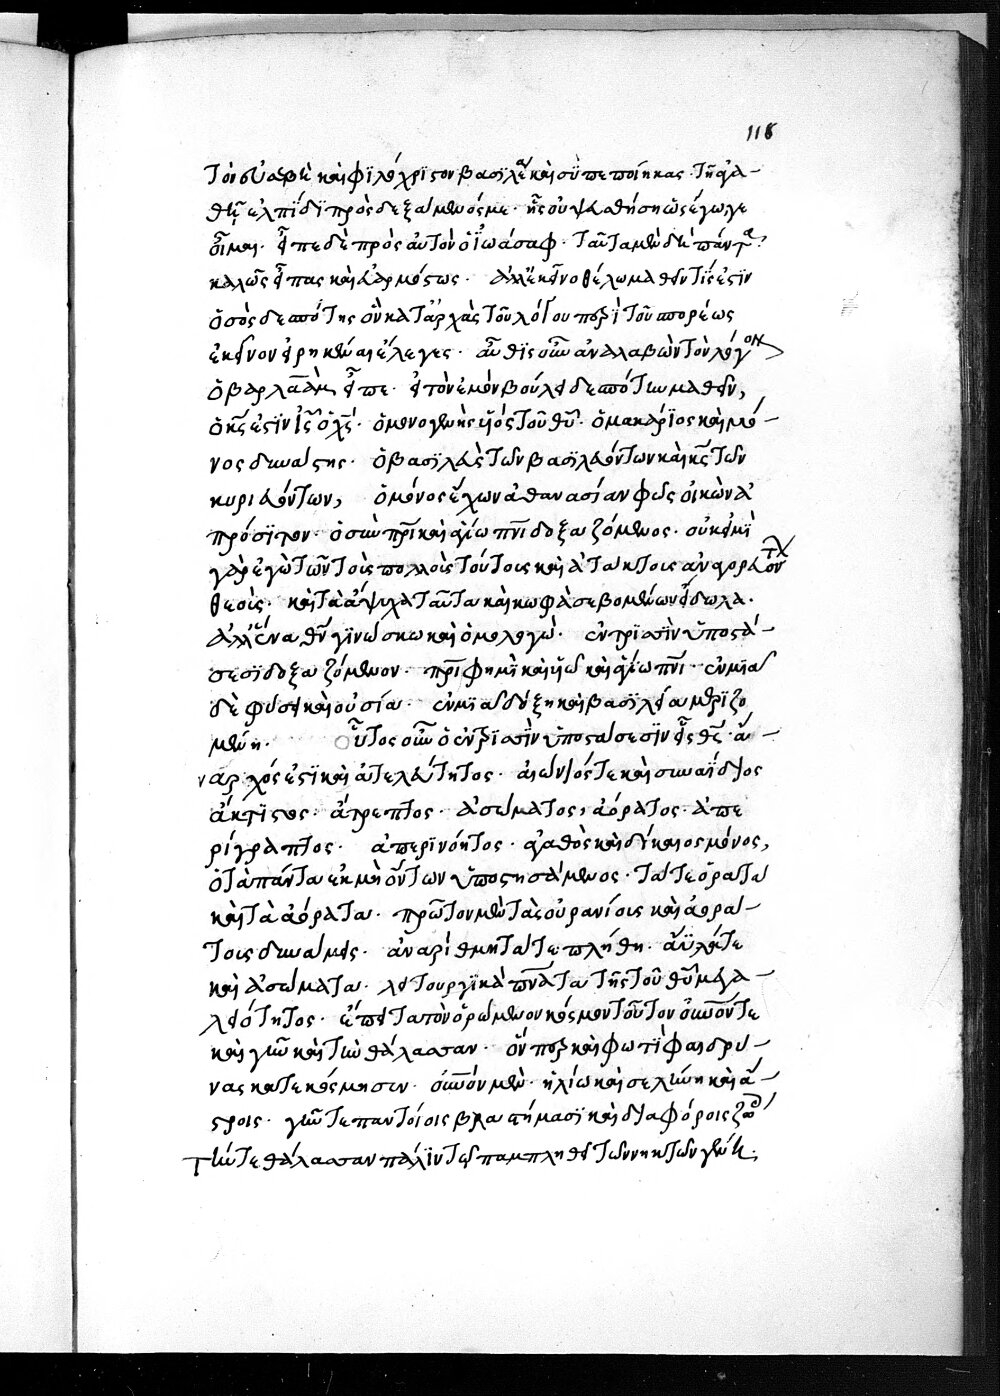 118
τὸν εὐσεβῆ καὶ φιλόχριστον βασιλέα καὶ σὺ πεποίηκας τῇ ἀγα-
θῇ ἐλπίδι προσδεξάμενός με· ἧς οὐ ψευσθήσῃ ὡς ἔγωγε
οἶμαι· εἶπε δὲ πρὸς αὐτὸν ὁ ἰωάσαφ· ταῦτα μὲν δὴ πάντα
καλῶς εἶπας καὶ εὐαρμόστως· ἀλλ' ἐκεῖνο θέλω μαθεῖν τίς ἐστϊν
ὁ σὸς δεσπότης ὃν κατ' ἀρχὰς τοῦ λόγου περὶ τοῦ σπορέως
ἐκείνου εἰρηκέναι ἔλεγες· αὖθις οὖν ἀναλαβὼν τὸν λόγον
ὁ βαρλαὰμ εἶπε· εἰ τὸν ἐμὸν βούλει δεσπότην μαθεῖν,
ὁ κς ἐστϊν ις ὁ χς· ὁ μονογενὴς υἱὸς τοῦ θυ· ὁ μακάριος καὶ μό-
νος δυνάστης· ὁ βασιλεὺς τῶν βασιλευόντων καὶ κς τῶν
κυριευόντων, ὁ μόνος ἔχων ἀθανασίαν φῶς οἰκῶν ἀ
πρόσϊτον· ὁ σὺν πρι καὶ ἁγίω πνι δοξαζόμενος· οὐκ εἰμὶ
γὰρ ἐγὼ τῶν τοὺς πολλοὺς τούτους καὶ ἀτάκτους ἀναγορευόντων
θεούς· καὶ τὰ ἄψυχα ταῦτα καὶ κωφὰ σεβομένων εἴδωλα·
ἀλλ' ἕνα θν γϊνώσκω καὶ ὁμολογῶ· ἐν τρισὶν ὑποστά-
σεσϊ δοξαζόμενον· πρι φημὶ καὶ υἱῶ καὶ ἁγίω πνι· ἐν μιᾶ
δὲ φύσει καὶ οὐσία· ἐν μιᾶ δόξῃ καὶ βασιλεία μὴ μεριζο
μένῃ· οὗτος οὖν ὁ ἐν τρισὶν ὑποστάσεσϊν εἷς θς ἄ-
ναρχός ἐστϊ καὶ ἀτελεύτητος· αἰώνιός τε καὶ συναΐδιος
ἄκτϊστος· ἄτρεπτος· ἀσώματος, ἀόρατος· ἀπε
ρίγραπτος· ἀπερινόητος· ἀγαθὸς καὶ δίκαιος μόνος,
ὁ τὰ πάντα ἐκ μὴ ὄντων ὑποστησάμενος· τά τε ὁρατὰ
καὶ τὰ ἀόρατα· πρῶτον μὲν τὰς οὐρανίους καὶ ἀορά-
τους δυνάμεις· ἀναρίθμητά τε πλήθη· ἄϋλά τε
καὶ ἀσώματα· λειτουργϊκὰ πνατα τῆς τοῦ θυ μεγα-
λειότητος· ἔπειτα τὸν ὁρώμενον κόσμον τοῦτον οὐνόν τε
καὶ γῆν καὶ τὴν θάλασσαν· ὅνπερ καὶ φωτὶ φαιδρύ-
νας κατεκόσμησεν· οὐνὸν μὲν ἡλίω καὶ σελήνῃ καὶ ἄ-
στροις· γῆν τε παντοίοις βλαστήμασϊ καὶ διαφόροις ζώοις
τήν τε θάλασσαν πάλϊν τῶ παμπληθεῖ τῶν νηκτῶν γένει·